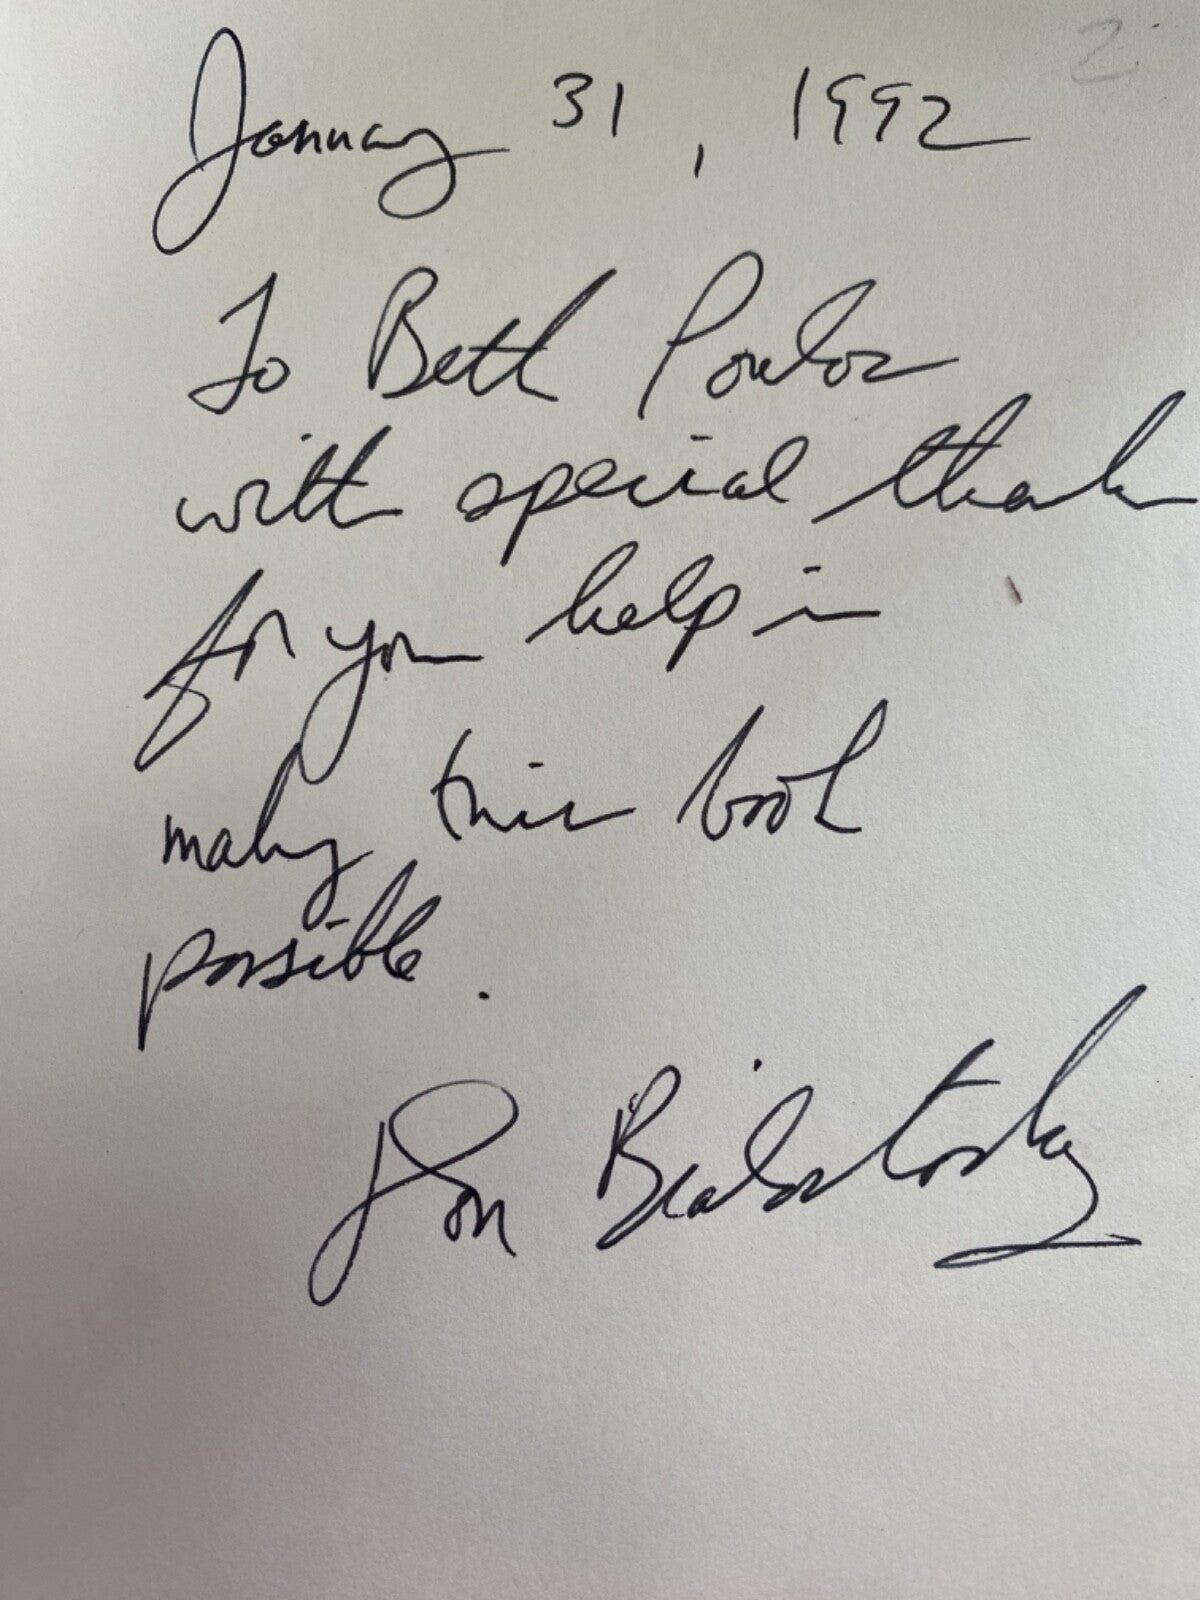 2
January 31, 1992
To Beth Poulos
with special thanks
for your help in
making this book
possible.
Don Bialostosky